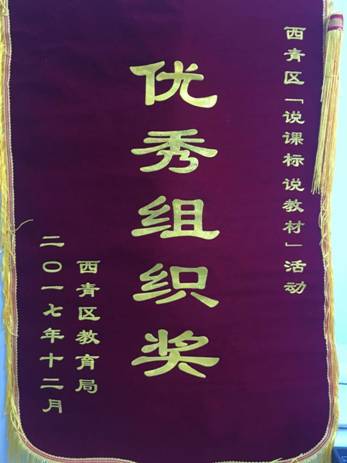 西青区「说课标说教材」活动
优秀组织奖
西青区教育局
二〇一七年十二月